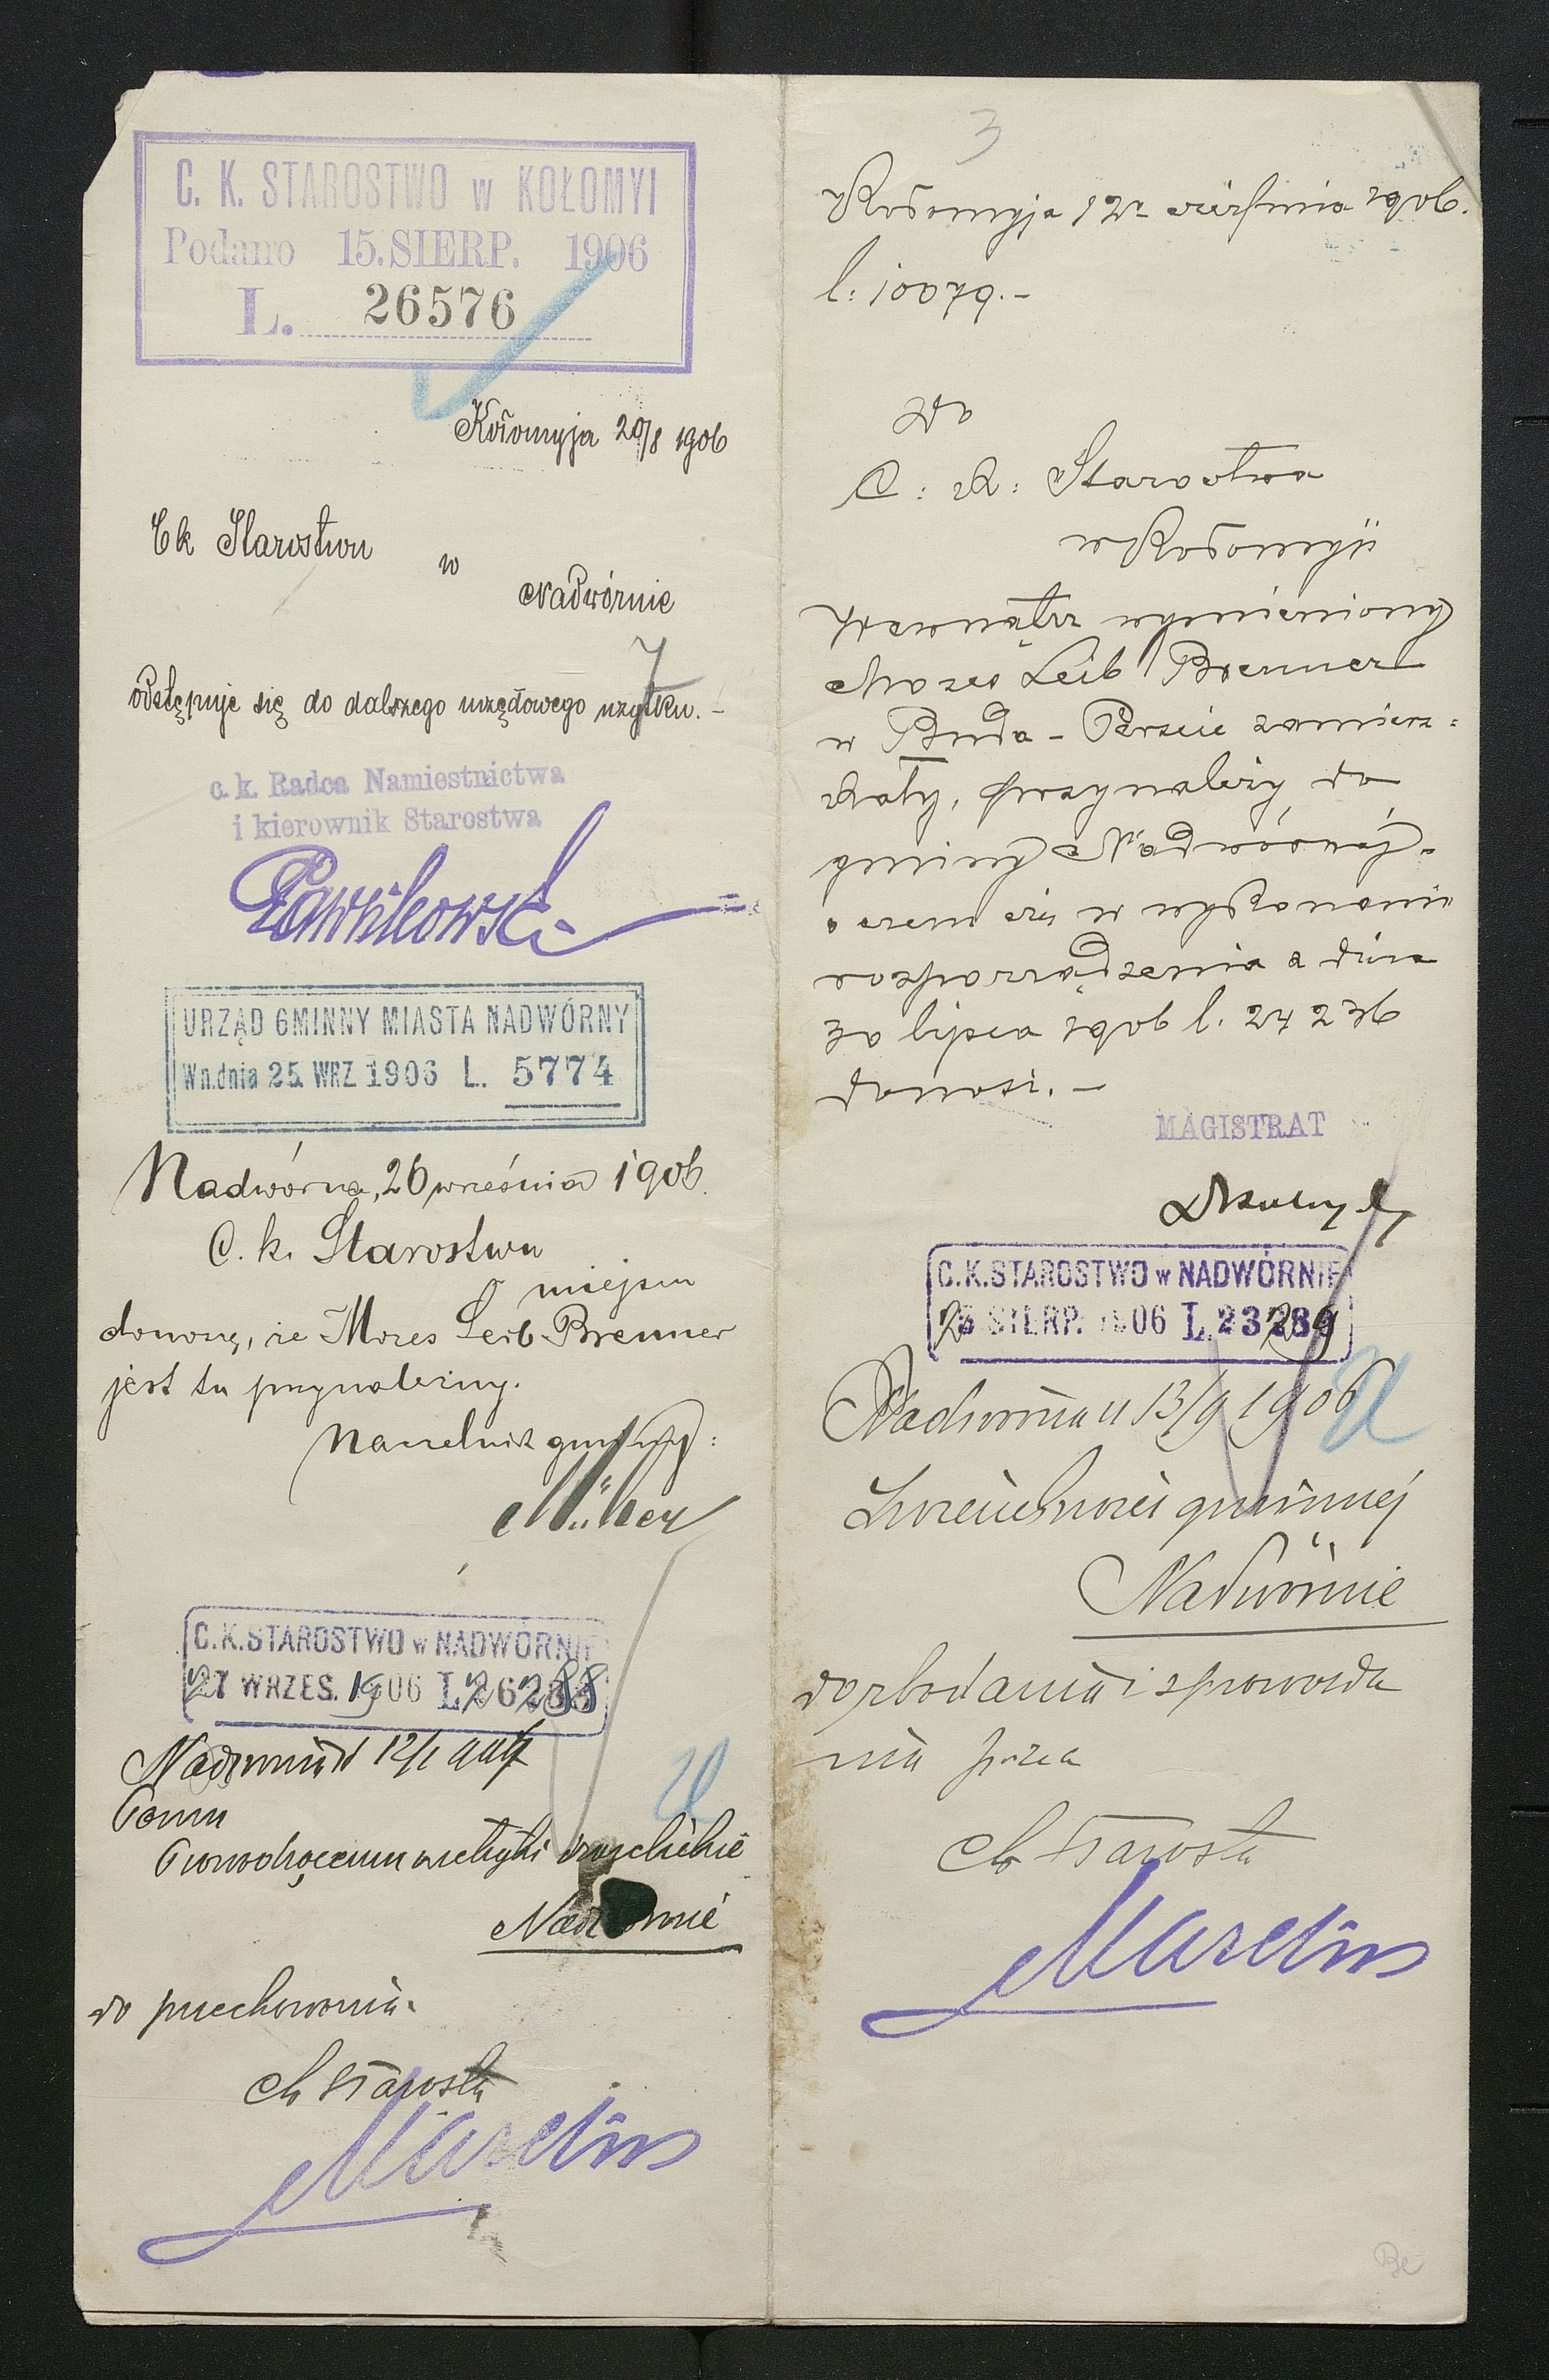 C. K. STAROSTWO w KOŁOMYI
Podano 15. SIERP. 1906
L. 26576
Kołomyja 20/8 1906
Ck Starostwu
w
Nadwórnie
7
odstępuje się do dalszego urzędowego użytku. -
c. k. Radca Namiestnictwa
i kierownik Starostwa
Pawlikowski
URZĄD GMINNY MIASTA NADWÓRNY
Wn. dnia 25 WRZ 1906 L. 5774
Nadwórna, 26 września 1906.
C. k. Starostwu
miejscu
donoszę, że Mozes Leib Brenner
jest tu przynależny.
Naczelnik gminy:
C.K. STAROSTWO w NADWÓRNIE
27 WRZES. 1906 L 26288
Prowadzącemu metryki izraelickie
Nadwórnie
do przechowania.
ck Starosta
3
Kołomyja 12 sierpnia 1906.
Do
C: K: Starostwa
w Kołomyji
Wewnątrz wymieniony
Mozes Leib Brenner
w Buda-Peszcie zamiesz=
kały, przynależy do
gminy Nadwórnej -
o czem się w wykonaniu
rozporządzenia z dnia
lipca 1906 l.
donosi. -
MAGISTRAT
C.K. STAROSTWO w NADWÓRNIE
SIERP. 1906 L. 23289
Nadwórna 13/9 1906
Zwierzchności gminnej
Nadwórnie
do zbadania i sprawozda
nia
ck Starosta
Be